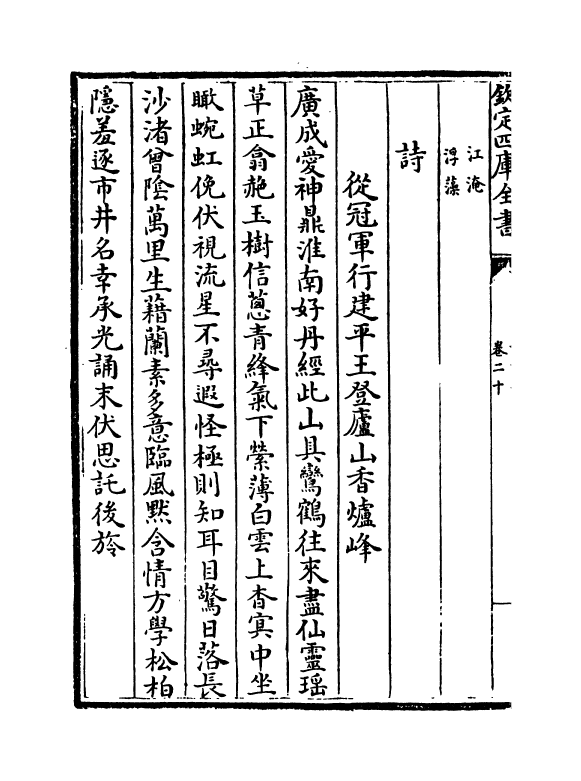 欽定四庫全書
卷二十
江淹
浮藻
詩
從冠軍行建平王登廬山香爐峰
廣成愛神鼎淮南好丹經此山具鸞鶴往來盡仙靈瑶
草正翕赩玉樹信葱青絳氣下縈薄白雲上杳冥中坐
瞰蜿虹俛伏視流星不尋遐怪極則知耳目驚日落長
沙渚曾陰萬里生藉蘭素多意臨風黙含情方學松柏
隱羞逐市井名幸承光誦末伏思託後旍